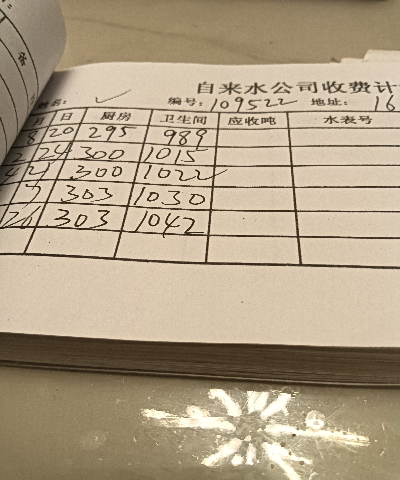 自来水公司收费计
姓名: ✓ 编号: 109522 地址: 16
月 日 厨房 卫生间 应收吨 水表号
8 20 295 989
24 300 1015
4 21 300 1022
7 303 1030
26 303 1042